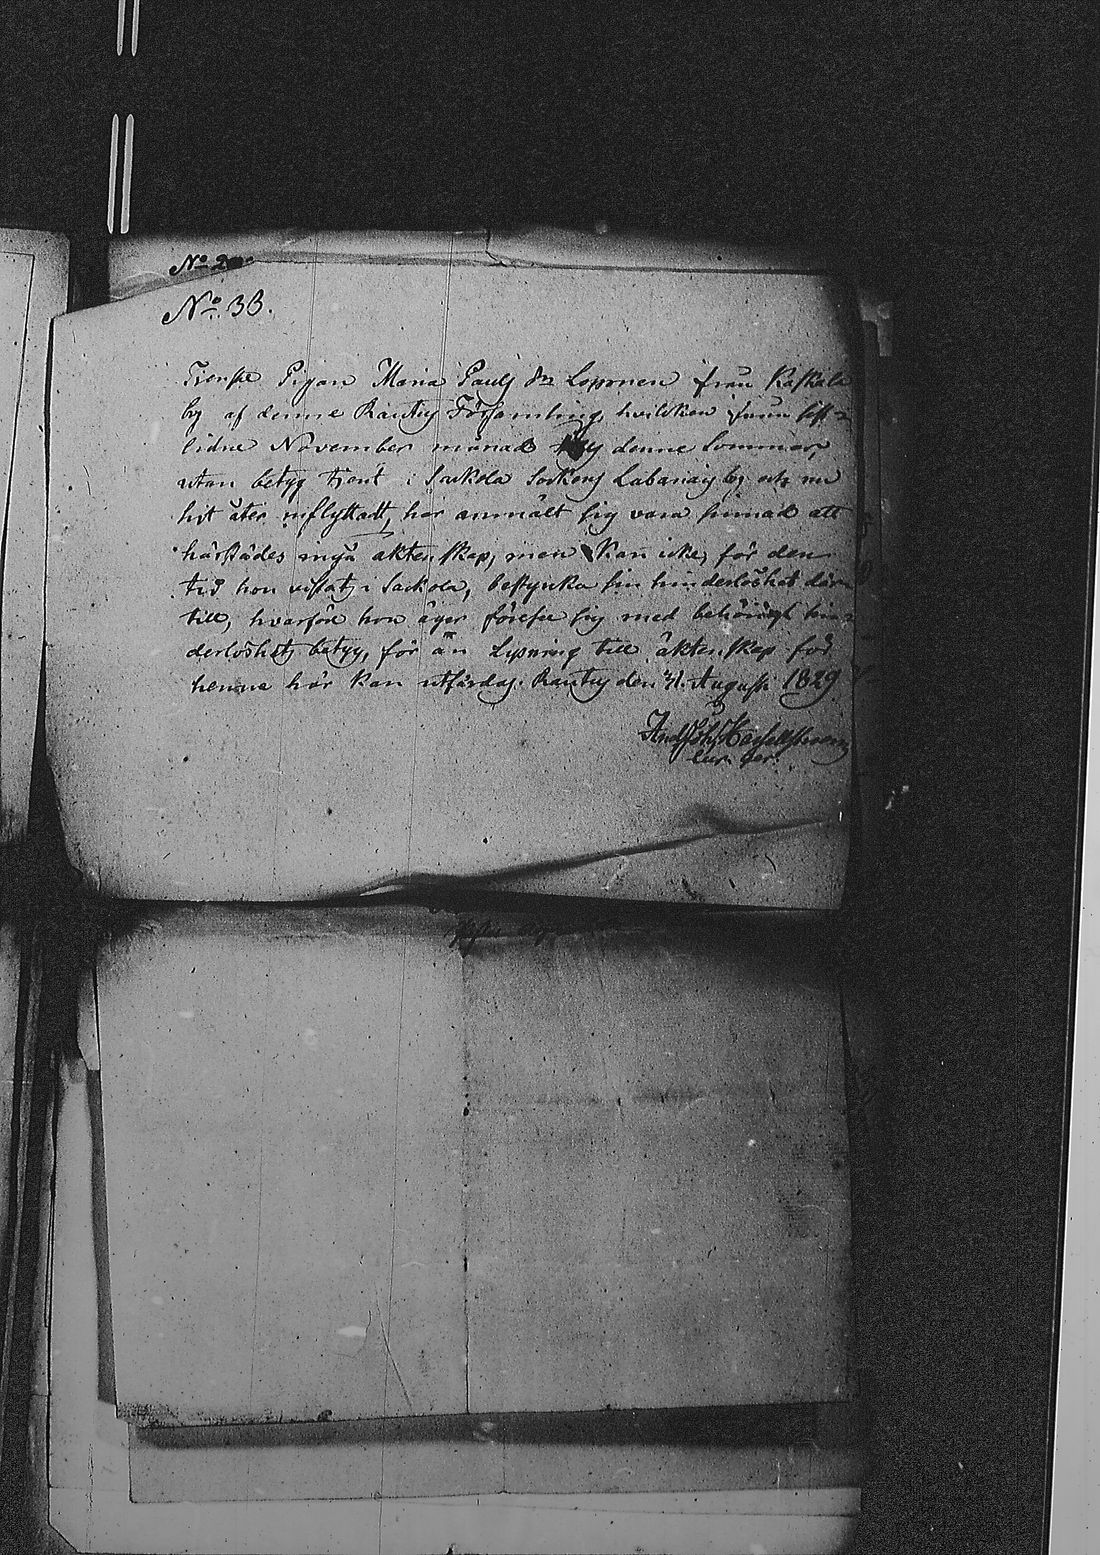 No 33.
Tienste Pigan Maria Pauls dr Loponen från Kaskala
by af denne Rautus Församling, hvilken från sist-
lidne November månad denne Sommar,
utan betyg tjent i Sackola Sockens Labanais by och nu
hit åter inflyttadt, har anmält sig vara sinnad att
härstädes ingå äktenskap, men kan icke, för den
tid hon vistats i Sackola, bestyrka sin hinderlöshet där-
till, hvarföre hon äger förese sig med behörigt hin-
derlöshets betyg, för än Lysning till äktenskap för
henne här kan utfärdas. Rautus den 31. Augusti 1829